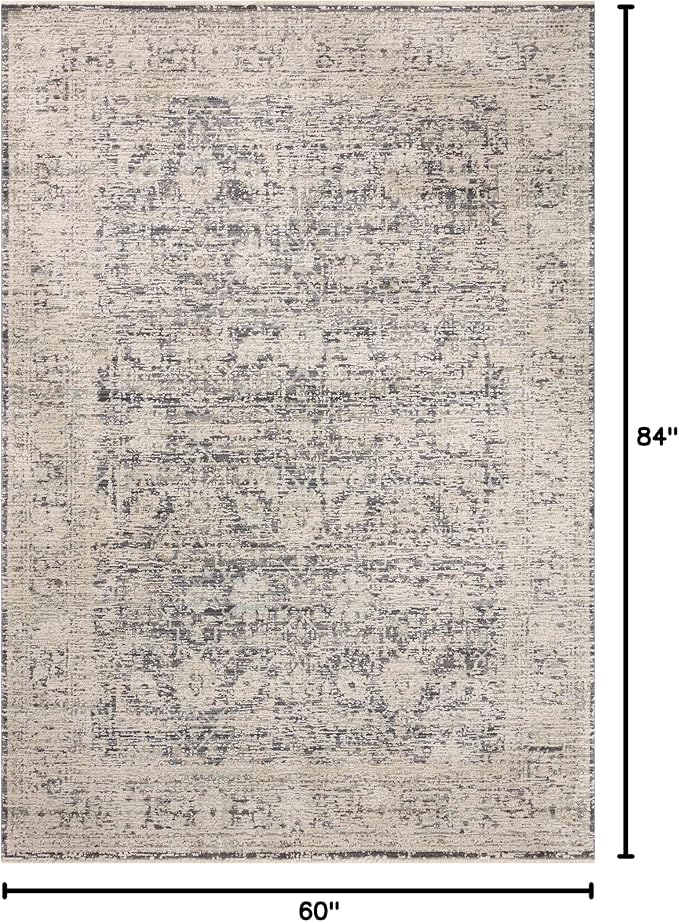 84"
60"